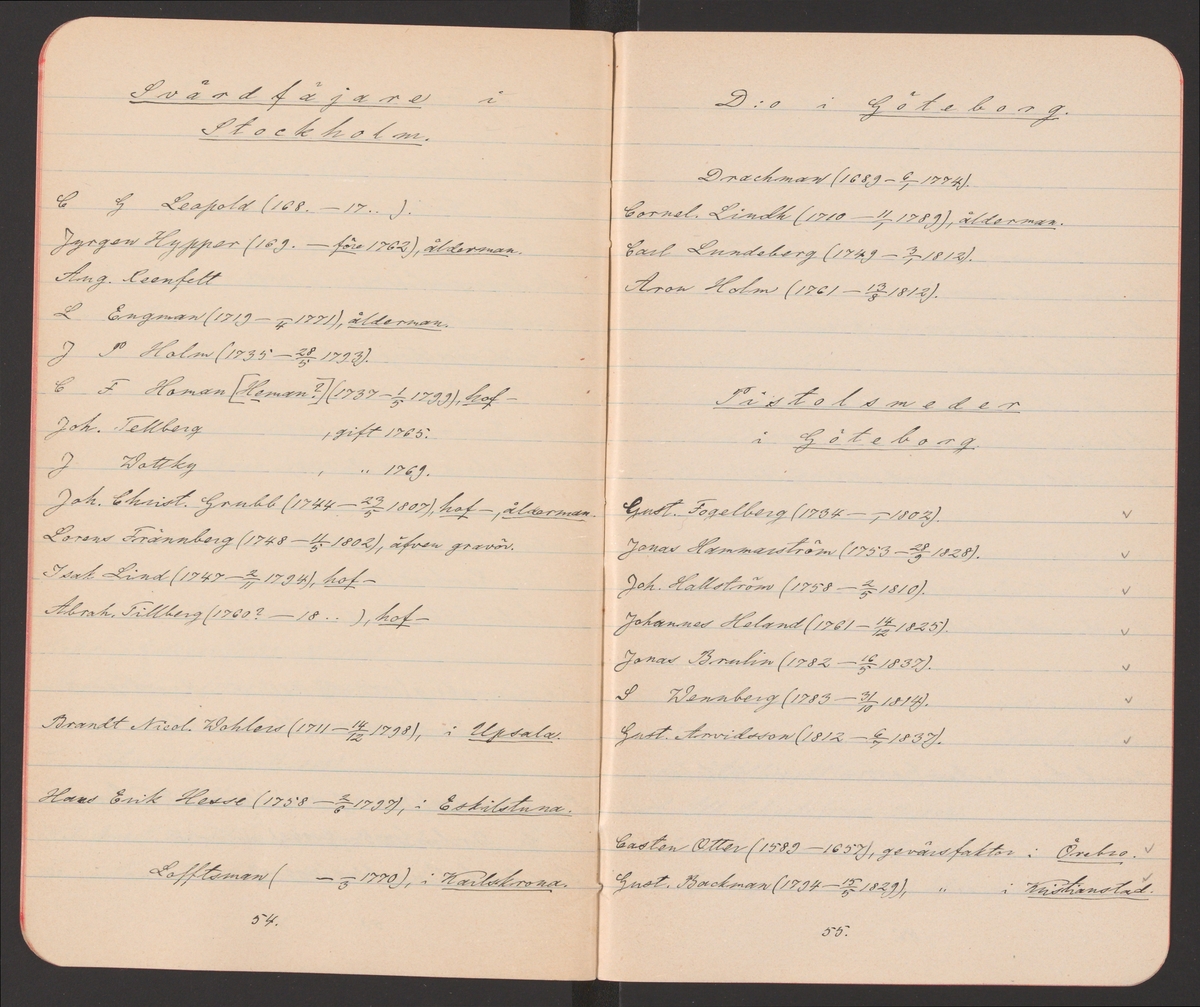 Svärdfäjare i
Stockholm.
C G Leopold (168. — 17.. ).
Jyrgen Hypper (169. — före 1762), ålderman.
Aug. Isenfelt
L Engman (1719 — /4 1771), ålderman.
J P Holm (1735 — 28/5 1793).
C F Homan [Heman?] (1737 — 1/5 1799), hof —
Joh. Tellberg , gift 1765.
J Wottky , " 1769.
Joh. Christ. Grubb (1744 — 23/5 1807), hof —, ålderman.
Lorens Frännberg (1748 — 11/5 1802), äfven gravör.
Isak Lind (1747 — 2/11 1794), hof —
Abrah. Tillberg (1760? — 18.. ), hof —
Brandt Nicol. Wohlers (1711 — 14/12 1798), i Upsala.
Hans Erik Hesse (1758 — 2/6 1797), i Eskilstuna.
Lofftsman ( — /3 1770), i Karlskrona.
54.
D:o i Göteborg.
Drachman (1689 — 6/1 1774).
Cornel. Lindh (1710 — 11/1 1789), ålderman.
Carl Lundeberg (1749 — 3/1 1812).
Aron Holm (1761 — 13/8 1812).
Pistolsmeder
i Göteborg
Gust. Fogelberg (1734 — /, 1802). ✓
Jonas Hammarström (1753 — 28/9 1828). ✓
Joh. Hallström (1758 — 2/5 1810). ✓
Johannes Heland (1761 — 14/12 1825). ✓
Jonas Brulin (1782 — 16/5 1837). ✓
S Wennberg (1783 — 31/10 1814). ✓
Gust. Arvidsson (1812 — 6/1 1837). ✓
Casten Otter (1589 — 1657), gevärsfaktor i Örebro. ✓
Gust. Backman (1794 — 15/5 1829), " i Kristianstad. ✓
55.